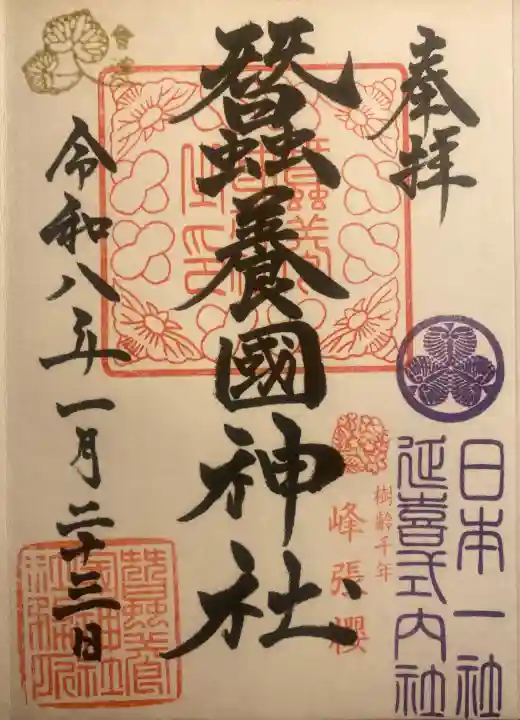 奉拝
日本一社
延喜式内社
樹齢千年
峰張櫻
蠶養國神社
會津
令和八年一月二十三日